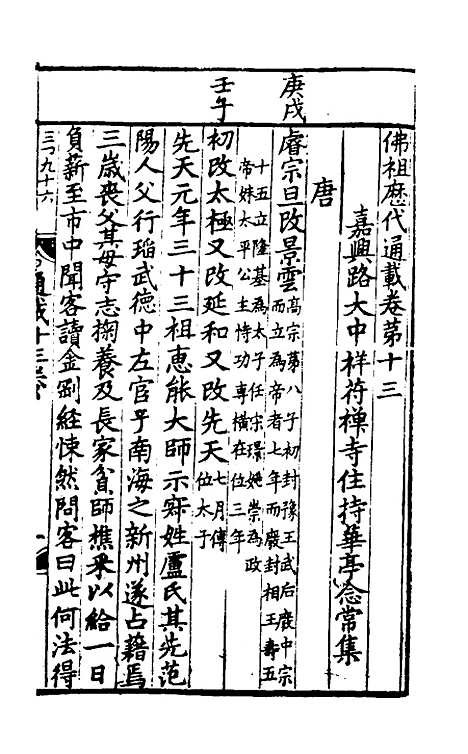 佛祖歷代通載卷第十三
嘉興路大中祥符禪寺住持華亭念常集
唐
庚戌
睿宗旦改景雲
高宗第八子初封豫王武后廢中宗
而立為帝者七年而廢封相王壽五
十五立隆基為太子任宋璟姚崇為政
帝妹太平公主恃功專橫在位三年
壬午
初改太極又改延和又改先天
七月傳
位太子
先天元年三十三祖惠能大師示寂姓盧氏其先范
陽人父行瑫武德中左官于南海之新州遂占籍焉
三歲喪父其母守志掬養及長家貧師樵采以給一日
負薪至市中聞客讀金剛經悚然問客曰此何法得
三つ九十六
通載十三